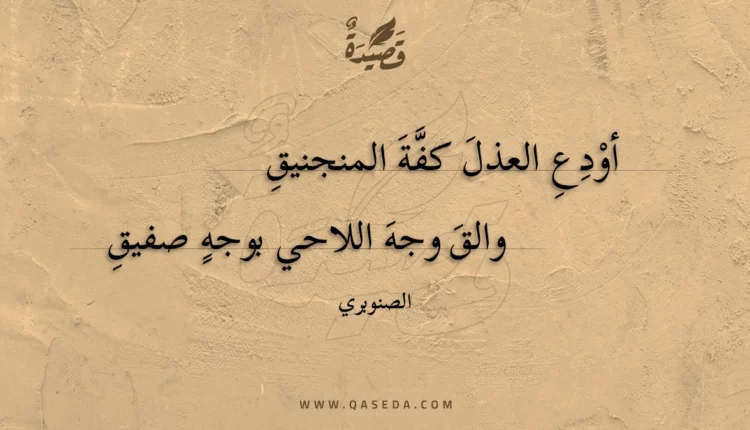 قَصِيدَةٌ
أوْدِعِ العذلَ كفَّةَ المنجنيقِ
والقَ وجهَ اللاحي بوجهٍ صفيقِ
الصنوبري
WWW.QASEDA.COM